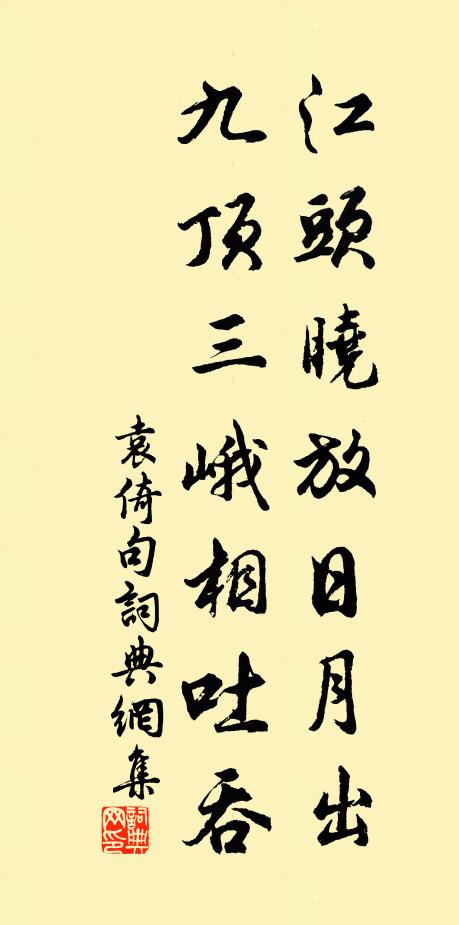 江頭曉放日月出
九顶三峨相吐吞
袁倚句詞典網集
詞典网印